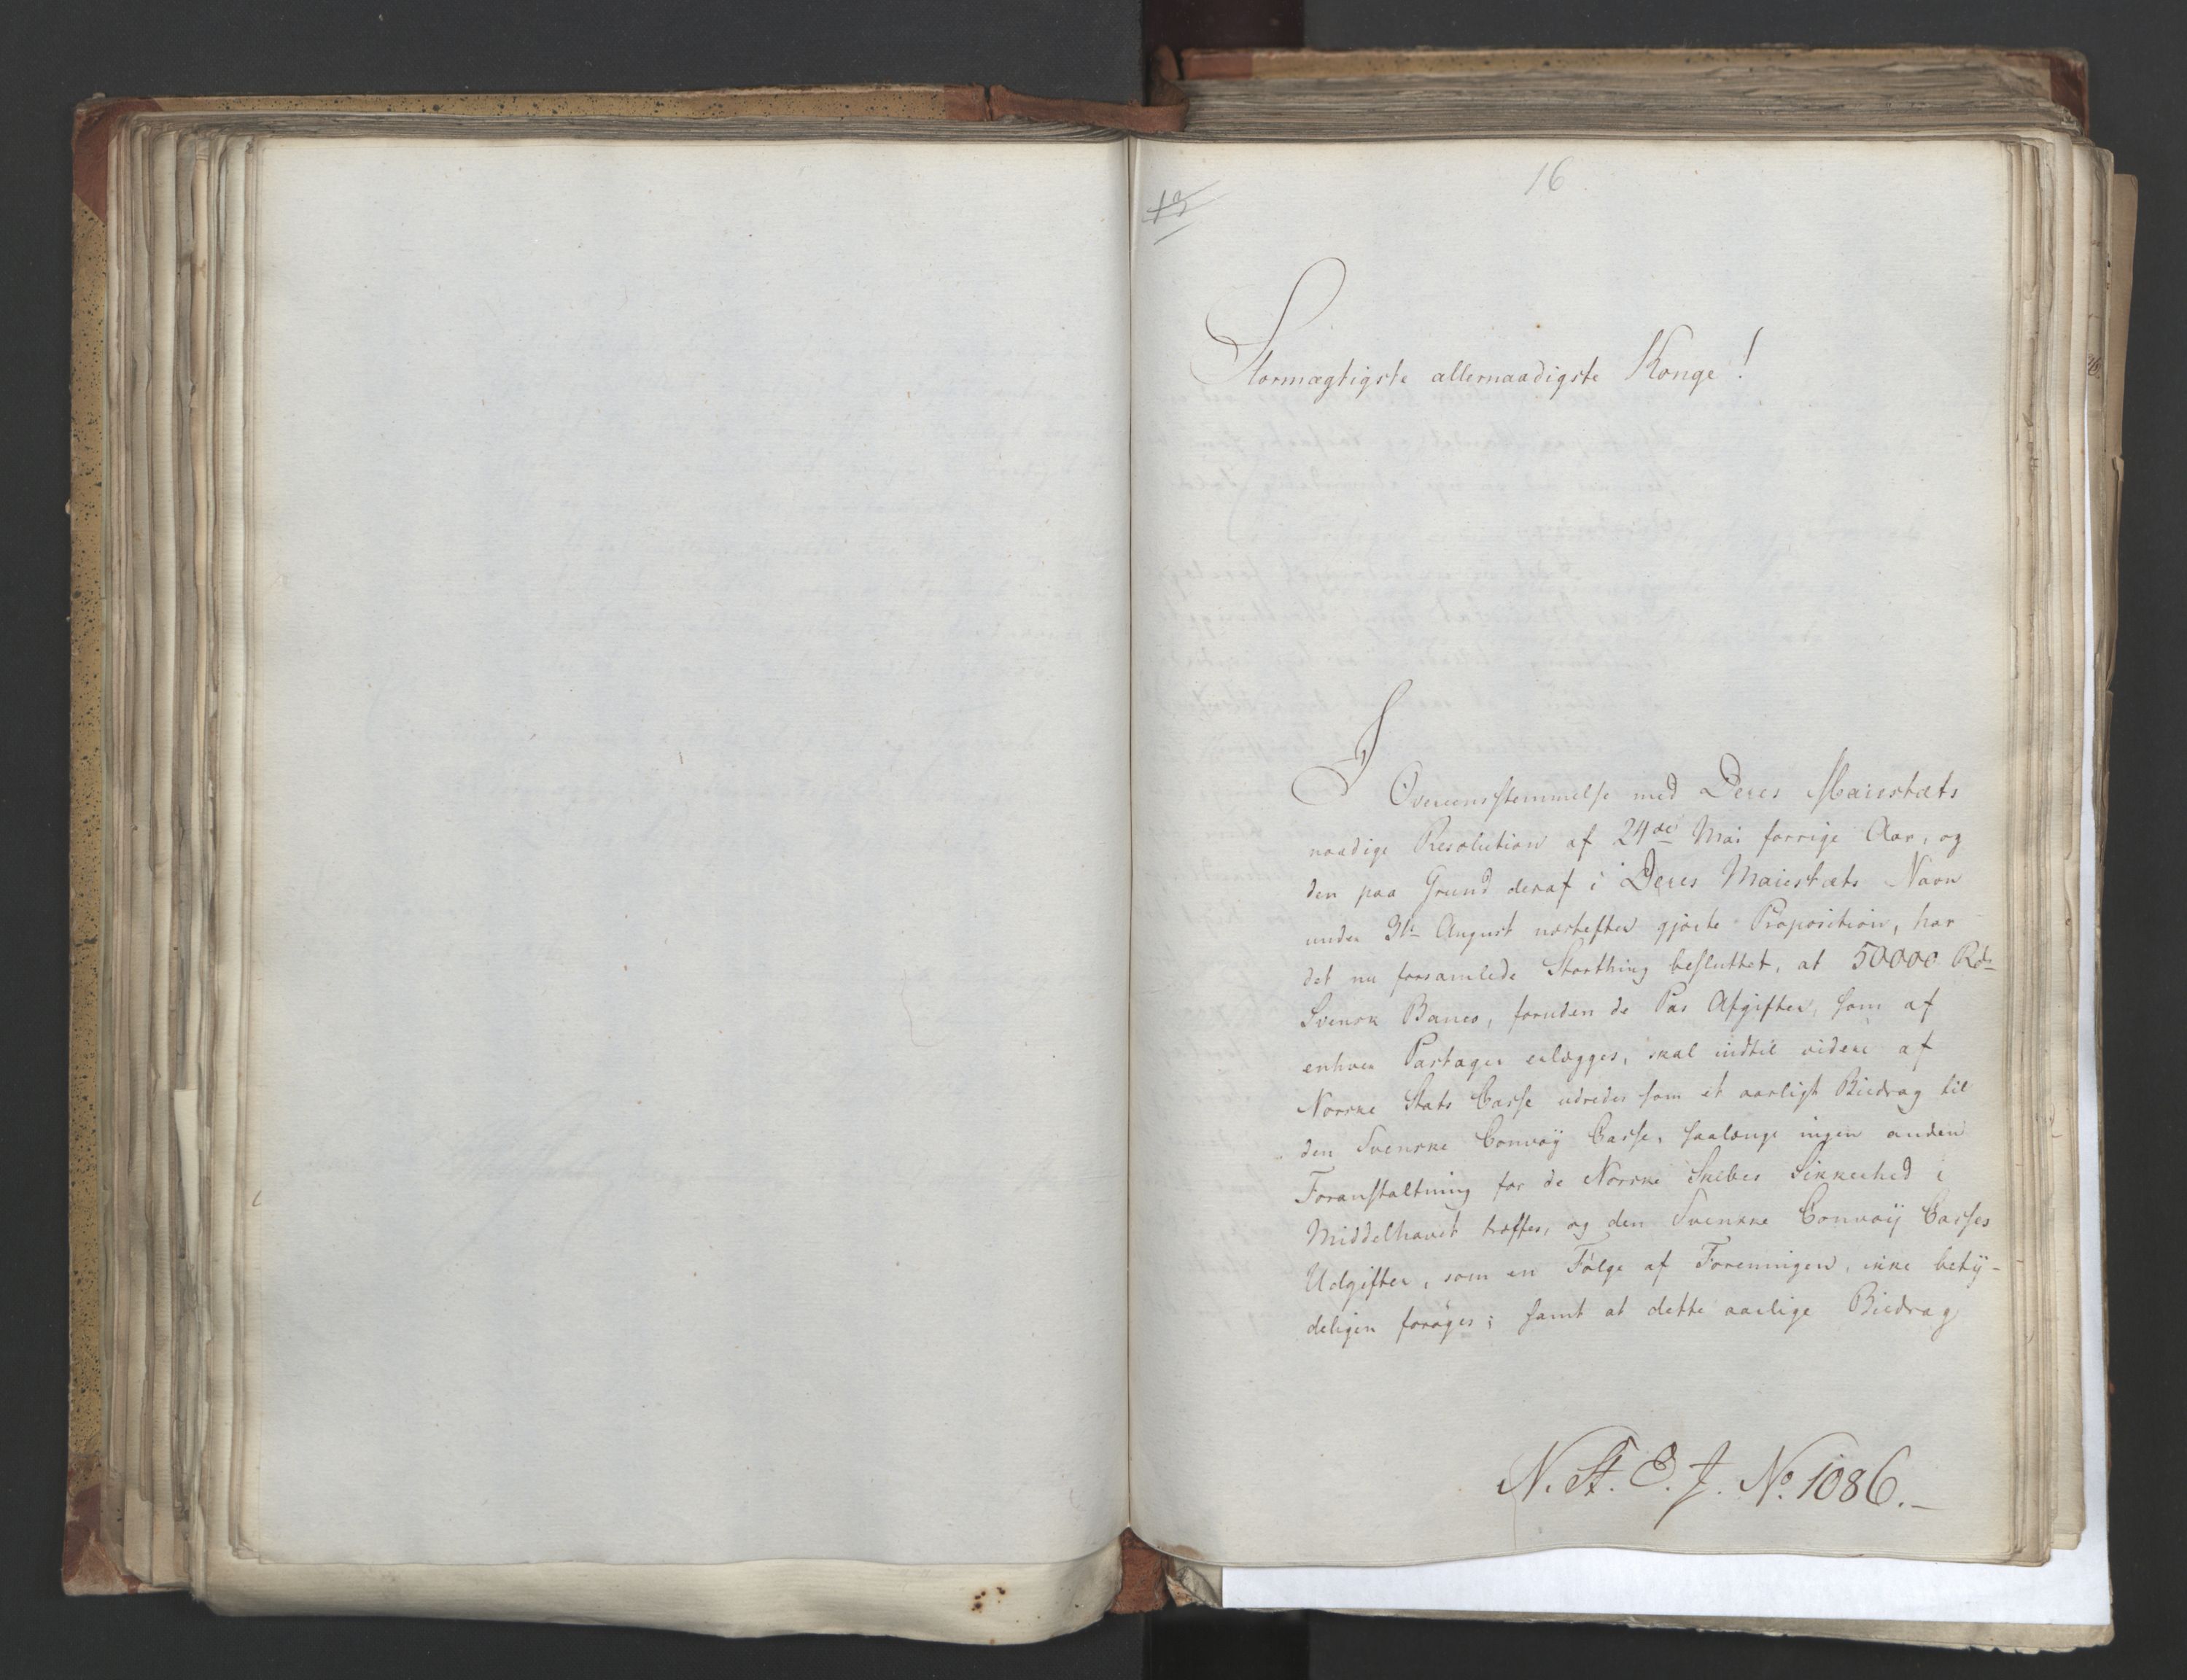 16
Stormægtigste allernaadigste Konge!
I
Overeensstemmelse med Deres Maiestæts
naadige Resolution af 24de Mai forrige Aar, og
den paa Grund deraf i Deres Maiestæts Navn
under August næstefter gjorte Proposition, har
det nu forsamlede Storthing besluttet, at 50000 Rd
Svensk Banco, foruden de Pas Afgifter, som af
enhver Pastager erlægges, skal indtil videre af
Norske Stats Casse udredes som et aarligt Bidrag til
den Svenske Convoÿ Casse, saalænge ingen anden
Foranstaltning for de Norske Skibes Sikkerhed i
Middelhavet træffes, og den Svenske Convoÿ Casses
Udgifter, som en Følge af Foreningen, ikke betÿ-
deligen forøges; samt at dette aarlige Bidrag
N. St. E. J. No. 1086.-